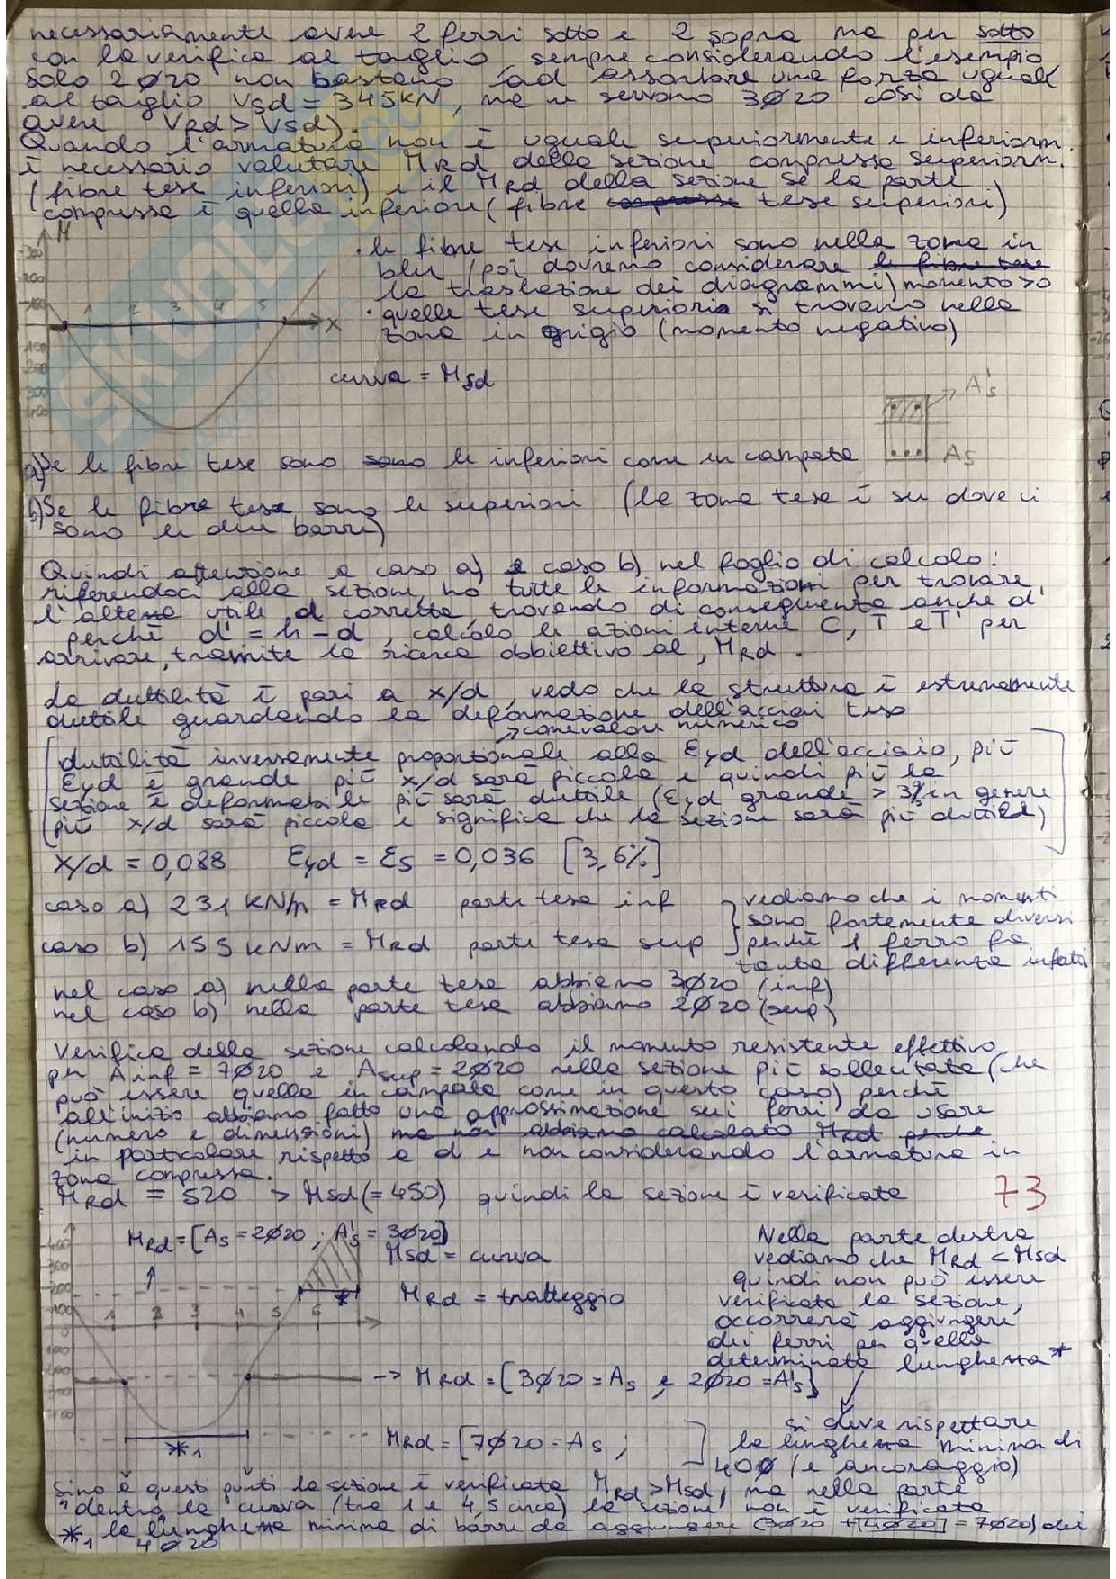 necessariamente avere 2 ferri sotto e 2 sopra ma per sotto
con la verifica al taglio, sempre considerando l'esempio
solo 2ø20 non bastano ad assorbire una forza uguale
al taglio Vsd = 345kN, ma ne servono 3ø20 così da
avere VRd > Vsd).
Quando l'armatura non è uguale superiormente e inferiorm.
è necessario valutare MRd della sezione compressa superiorm.
(fibre tese inferiori) e il MRd della sezione se la parte
compressa è quella inferiore (fibre compresse tese superiori)
M
x
1 2 3 4 5
• le fibre tese inferiori sono nella zona in
blu (poi dovremo considerare le fibre tese
la traslazione dei diagrammi) momento >0
• quelle tese superiori si trovano nella
zona in grigio (momento negativo)
curva = Msd
A's
As
a) Se le fibre tese sono sono le inferiori come in campata
b) Se le fibre tese sono le superiori (la zona tesa è su dove ci
sono le due barre)
Quindi attenzione a caso a) e caso b) nel foglio di calcolo:
riferendoci alla sezione, ho tutte le informazioni per trovare
l'altezza utile d corretta, trovando di conseguenza anche d'
perché d' = h - d, calcolo le azioni interne C, T e T' per
arrivare, tramite la ricerca obbiettivo al, MRd.
La duttilità è pari a x/d, vedo che la struttura è estremamente
duttile guardando la deformazione dell'acciaio teso
→ come valore numerico
duttilità inversamente proporzionale alla Eyd dell'acciaio, più
Eyd è grande più x/d sarà piccola e quindi più la
sezione è deformabile più sarà duttile (Eyd grande > 3% in genere
più x/d sarà piccola e significa che la sezione sarà più duttile)
x/d = 0,088 Eyd = Es = 0,036 [3,6%]
caso a) 231 kN/m = MRd parte tesa inf
vediamo che i momenti
sono fortemente diversi
caso b) 155 kNm = MRd parte tesa sup
perché 1 ferro fa
tanta differenza infatti
nel caso a) nella parte tesa abbiamo 3ø20 (inf)
nel caso b) nella parte tesa abbiamo 2ø20 (sup)
Verifica della sezione calcolando il momento resistente effettivo
per Ainf = 7ø20 e Asup = 2ø20 nella sezione più sollecitata (che
può essere quella in campata come in questo caso) perché
all'inizio abbiamo fatto una approssimazione sui ferri da usare
(numero e dimensioni) ma non abbiamo calcolato MRd perché
in particolare rispetto a d e non considerando l'armatura in
zona compressa.
MRd = 520 > Msd (= 450) quindi la sezione è verificata
73
MRd = [As = 2ø20 ; A's = 3ø20]
Msd = curva
MRd = tratteggio
1 2 3 4 5 6
Nella parte destra
vediamo che MRd < Msd
quindi non può essere
verificata la sezione,
occorrerà aggiungere
dei ferri per quella
determinata lunghezza*
→ MRd = [3ø20 = As e 2ø20 = A's]
si deve rispettare
la lunghezza minima di
40ø (e ancoraggio)
MRd = [7ø20 = As ;
*1
Sino a questi punti la sezione è verificata MRd > Msd, ma nella parte
dentro la curva (tra 1 e 4,5 circa) la sezione non è verificata
*1 la lunghezza minima di barre da aggiungere (3ø20 + [4ø20] = 7ø20) dei
4ø20